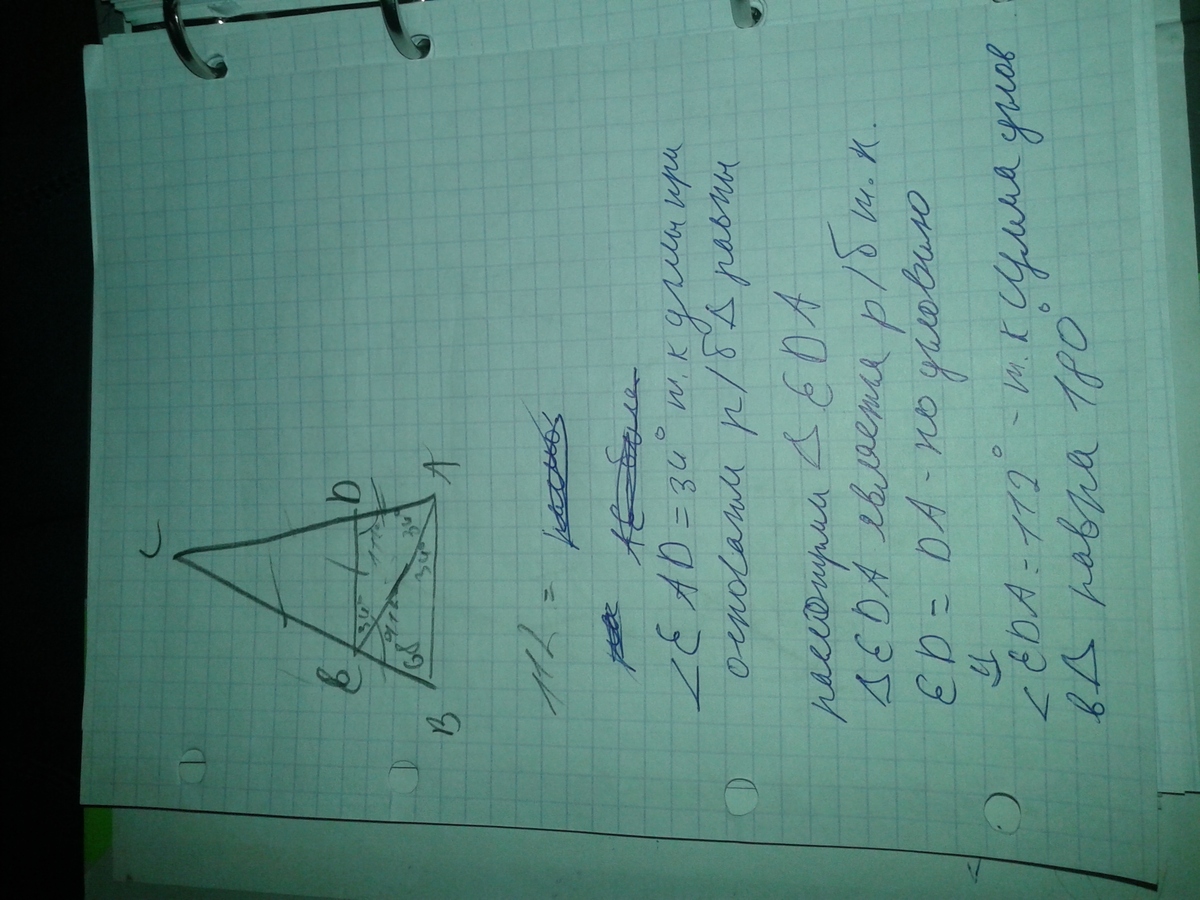 C
E D
34° 112°
78° 34°
68 34°
B A
112 =
∠EAD = 34° т.к углы при
основании р/б Δ равны
рассмотрим Δ EDA
Δ EDA является р/б т.к.
ED = DA - по условию
∠EDA = 112° - т.к сумма углов
в Δ равна 180°